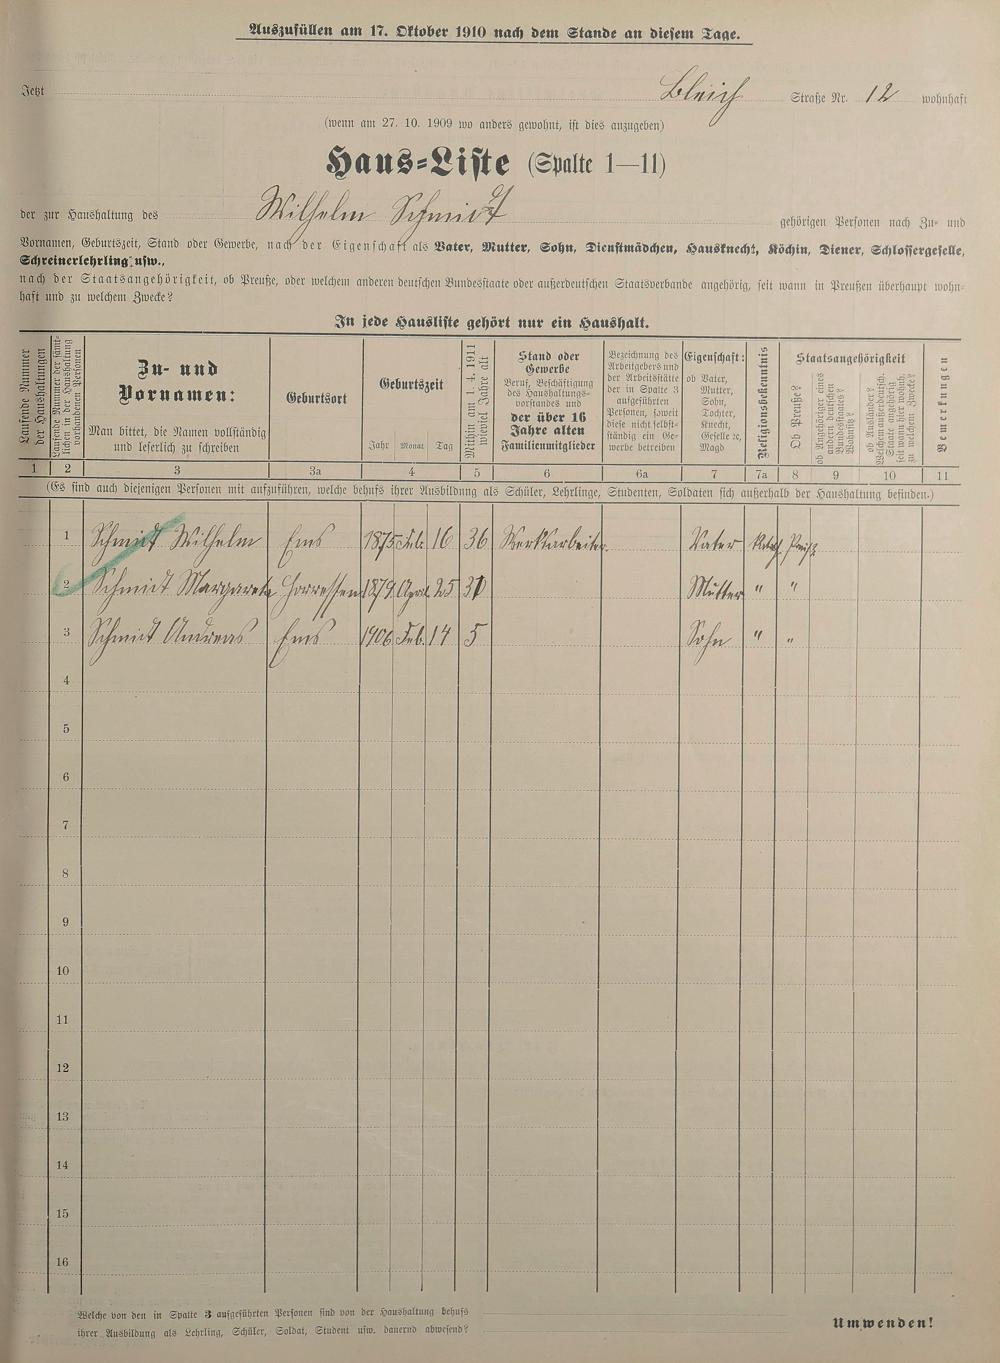 Auszufüllen am 17. Oktober 1910 nach dem Stande an diesem Tage.
Jetzt Bleich Straße Nr. 12 wohnhaft
(wenn am 27. 10. 1909 wo anders gewohnt, ist dies anzugeben)
Haus-Liste (Spalte 1—11)
der zur Haushaltung des Wilhelm Schmidt gehörigen Personen nach Zu- und
Vornamen, Geburtszeit, Stand oder Gewerbe, nach der Eigenschaft als Vater, Mutter, Sohn, Dienstmädchen, Hausknecht, Köchin, Diener, Schlossergeselle,
Schreinerlehrling usw.,
nach der Staatsangehörigkeit, ob Preuße, oder welchem anderen deutschen Bundesstaate oder außerdeutschen Staatsverbande angehörig, seit wann in Preußen überhaupt wohn-
haft und zu welchem Zwecke?
In jede Hausliste gehört nur ein Haushalt.
Laufende Nummer
der Haushaltungen
Laufende Nummer der sämt-
lichen in der Haushaltung
vorhandenen Personen
Zu- und
Vornamen:
Man bittet, die Namen vollständig
und leserlich zu schreiben
Geburtsort
Geburtszeit
Jahr Monat Tag
Mithin am 1. 4. 1911
wieviel Jahre alt
Stand oder
Gewerbe
Beruf, Beschäftigung
des Haushaltungs-
vorstandes und
der über 16
Jahre alten
Familienmitglieder
Bezeichnung des
Arbeitgebers und
der Arbeitsstätte
der in Spalte 3
aufgeführten
Personen, soweit
diese nicht selbst-
ständig ein Ge-
werbe betreiben
Eigenschaft:
ob Vater,
Mutter,
Sohn,
Tochter,
Knecht,
Geselle ꝛc,
Magd
Religionsbekenntnis
Staatsangehörigkeit
Ob Preuße?
ob Angehöriger eines
andern deutschen
Bundesstaates?
Welchen?
ob Ausländer?
Welchem außerdeutsch.
Staate angehörig
seit wann hier wohnh.
zu welchem Zwecke?
Bemerkungen
1 2 3 3a 4 5 6 6a 7 7a 8 9 10 11
(Es sind auch diejenigen Personen mit aufzuführen, welche behufs ihrer Ausbildung als Schüler, Lehrlinge, Studenten, Soldaten sich außerhalb der Haushaltung befinden.)
1 Schmidt Wilhelm Ems 1875 Feb. 16 36 Werksarbeiter. Vater Kath. Preuße
2 Schmidt Margareta Horressen 1879 April 25 31 Mutter " "
3 Schmidt Andreas Ems 1906 Feb. 14 5 Sohn " "
4
5
6
7
8
9
10
11
12
13
14
15
16
Welche von den in Spalte 3 aufgeführten Personen sind von der Haushaltung behufs
ihrer Ausbildung als Lehrling, Schüler, Soldat, Student usw. dauernd abwesend?
Umwenden!